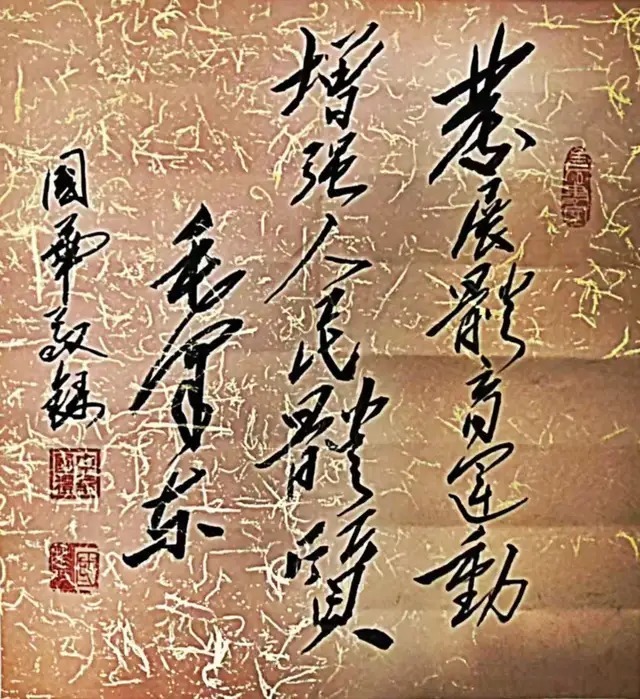 發展體育運動
增强人民體質
毛澤东
國華敬錄